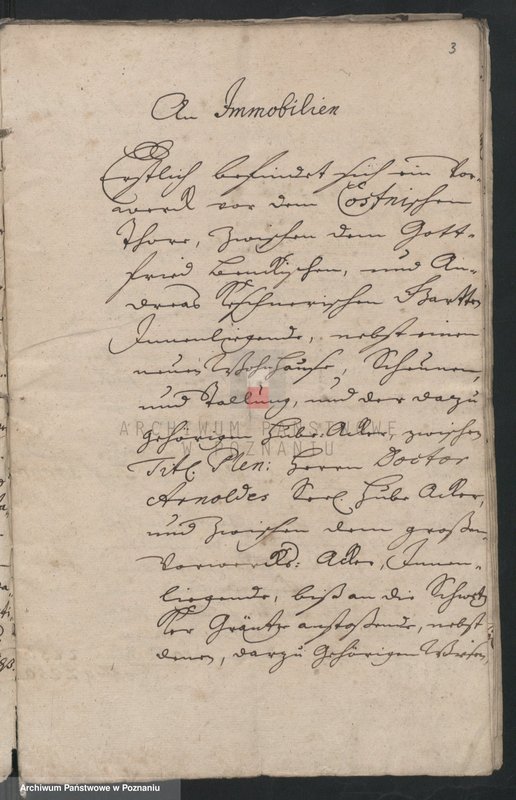 3
An Immobilien
Erstlich befindet sich ein Vor-
werck vor dem Costnischen
Thore, zwischen dem Gott-
fried Benckischen, und An-
dreas Teschnerischen Gartten
Innenliegende, nebst einem
neuen Wohnhause, Scheunen,
und Stallung, und der dazu
gehörigen Hube Acker, zwischen
Titl. Plen: Herrn Doctor
Arnoldes Seel. Hube Acker,
und zwischen dem großen
Vorwercks: Acker, Innen-
liegende, biß an die
Gräntze anstoßende, nebst
denen, darzu gehörigen Wiesen,
ARCHIWUM PAŃSTWOWE
W POZNANIU
Archiwum Państwowe w Poznaniu